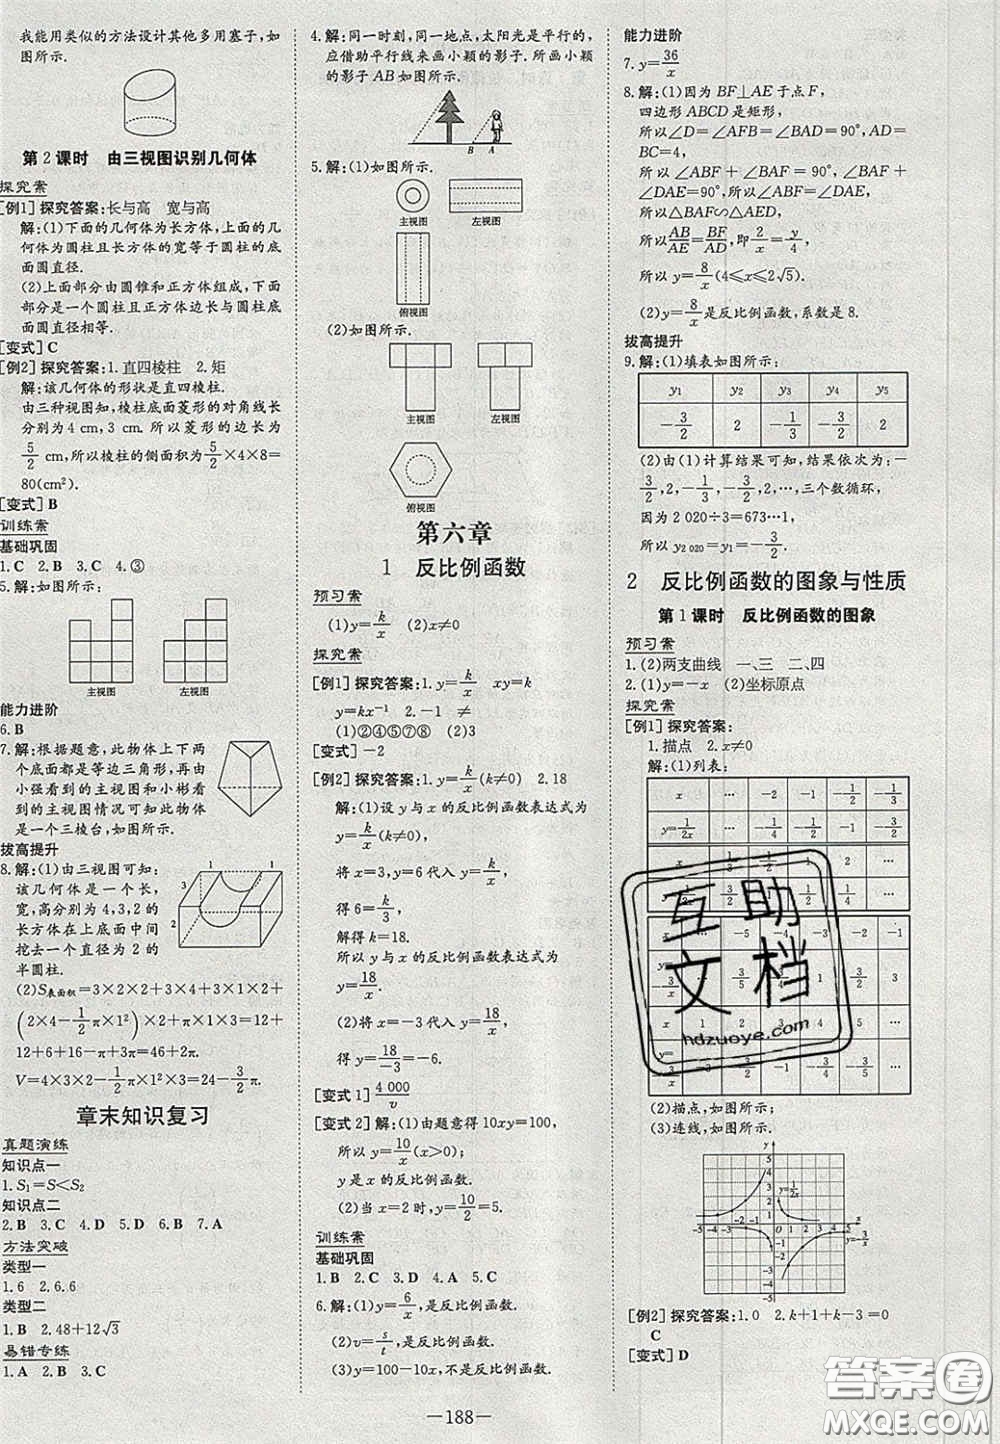 我能用类似的方法设计其他多用塞子,如
图所示.
第2课时 由三视图识别几何体
探究案
[例1]探究答案:长与高 宽与高
解:(1)下面的几何体为长方体,上面的几
何体为圆柱且长方体的宽等于圆柱的底
面圆直径.
(2)上面部分由圆锥和正方体组成,下面
部分是一个圆柱且正方体边长与圆柱底
面圆直径相等.
[变式]C
[例2]探究答案:1.直四棱柱 2.矩
解:该几何体的形状是直四棱柱.
由三种视图知,棱柱底面菱形的对角线长
分别为4 cm,3 cm.所以菱形的边长为
5/2 cm,所以棱柱的侧面积为5/2×4×8=
80(cm²).
[变式]B
训练案
基础巩固
1.C 2.B 3.C 4.③
5.解:如图所示:
主视图 左视图
能力进阶
6.B
7.解:根据题意,此物体上下两
个底面都是等边三角形,再由
小强看到的主视图和小彬看
到的主视图情况可知此物体
是一个三棱台,如图所示.
拔高提升
8.解:(1)由三视图可知:
该几何体是一个长,
宽,高分别为4,3,2的
长方体在上底面中间
挖去一个直径为2的
半圆柱.
1 1
3
2
(2)S表面积=3×2×2+3×4+3×1×2+
(2×4-1/2π×1²)×2+3×π×1=12+
12+6+16-π+3π=46+2π.
V=4×3×2-1/2π×1²×3=24-3/2π.
章末知识复习
真题演练
知识点一
1.S₁=S<S₂
知识点二
2.B 3.C 4.D 5.D 6.B 7.A
方法突破
类型一
1.6 2.6.6
类型二
1.B 2.48+12√3
易错专练
1.A 2.B 3.C
4.解:同一时刻,同一地点,太阳光是平行的,
应借助平行线来画小颖的影子.所画小颖
的影子AB如图所示.
B A
5.解:(1)如图所示.
主视图 左视图
俯视图
(2)如图所示.
主视图 左视图
俯视图
第六章
1 反比例函数
预习案
(1)y=k/x (2)x≠0
探究案
[例1]探究答案:1.y=k/x xy=k
y=kx⁻¹ 2.-1 ≠
(1)②④⑤⑦⑧ (2)3
[变式]-2
[例2]探究答案:1.y=k/x(k≠0) 2.18
解:(1)设y与x的反比例函数表达式为
y=k/x(k≠0).
将x=3,y=6代入y=k/x,
得6=k/3,
解得k=18.
所以y与x的反比例函数表达式为
y=18/x.
(2)将x=-3代入y=18/x,
得y=18/-3=-6.
[变式1]4 000/v
[变式2]解:(1)由题意得10xy=100,
所以y=10/x(x>0).
y是x的反比例函数.
(2)当x=2时,y=10/2=5.
训练案
基础巩固
1.B 2.C 3.D 4.A 5.B
6.解:(1)y=6/x,是反比例函数.
(2)v=s/t,是反比例函数.
(3)y=100-10x,不是反比例函数.
能力进阶
7.y=36/x
8.解:(1)因为BF⊥AE于点F,
四边形ABCD是矩形,
所以∠D=∠AFB=∠BAD=90°,AD=
BC=4,
所以∠ABF+∠BAF=90°,∠BAF+
∠DAE=90°,所以∠ABF=∠DAE,
所以△BAF∽△AED,
所以AB/AE=BF/AD,即2/x=y/4,
所以y=8/x(4≤x≤2√5).
(2)y=8/x是反比例函数,系数是8.
拔高提升
9.解:(1)填表如图所示:
y₁ y₂ y₃ y₄ y₅
-3/2 2 -1/3 -3/2 2
(2)由(1)计算结果可知,结果依次为:-
3/2,2,-1/3,-3/2,2,…,三个数循环,
因为2 020÷3=673…1,
所以y₂ ₀₂₀=y₁=-3/2.
2 反比例函数的图象与性质
第1课时 反比例函数的图象
预习案
1.(2)两支曲线 一、三 二、四
2.(1)y=-x (2)坐标原点
探究案
[例1]探究答案:
1.描点 2.x≠0
解:(1)列表:
x … -2 -1 -1/2 -1/3
y=1/2x … -1/4 -1/2 -1 -3/2
1 2 …
… -5 -3
1 3/5 3
3 5 …
-1 -3/5 …
(2)描点,如图所示:
(3)连线,如图所示:
y
y=1/2x
-5 -4 -3 -2 -1 O 1 2 3 4 5 x
y=-3/x
[例2]探究答案:1.0 2.k+1+k-3=0
C
[变式]D
—188—
互助
文档
hdzuoye.com
答案圈
MXQE.COM